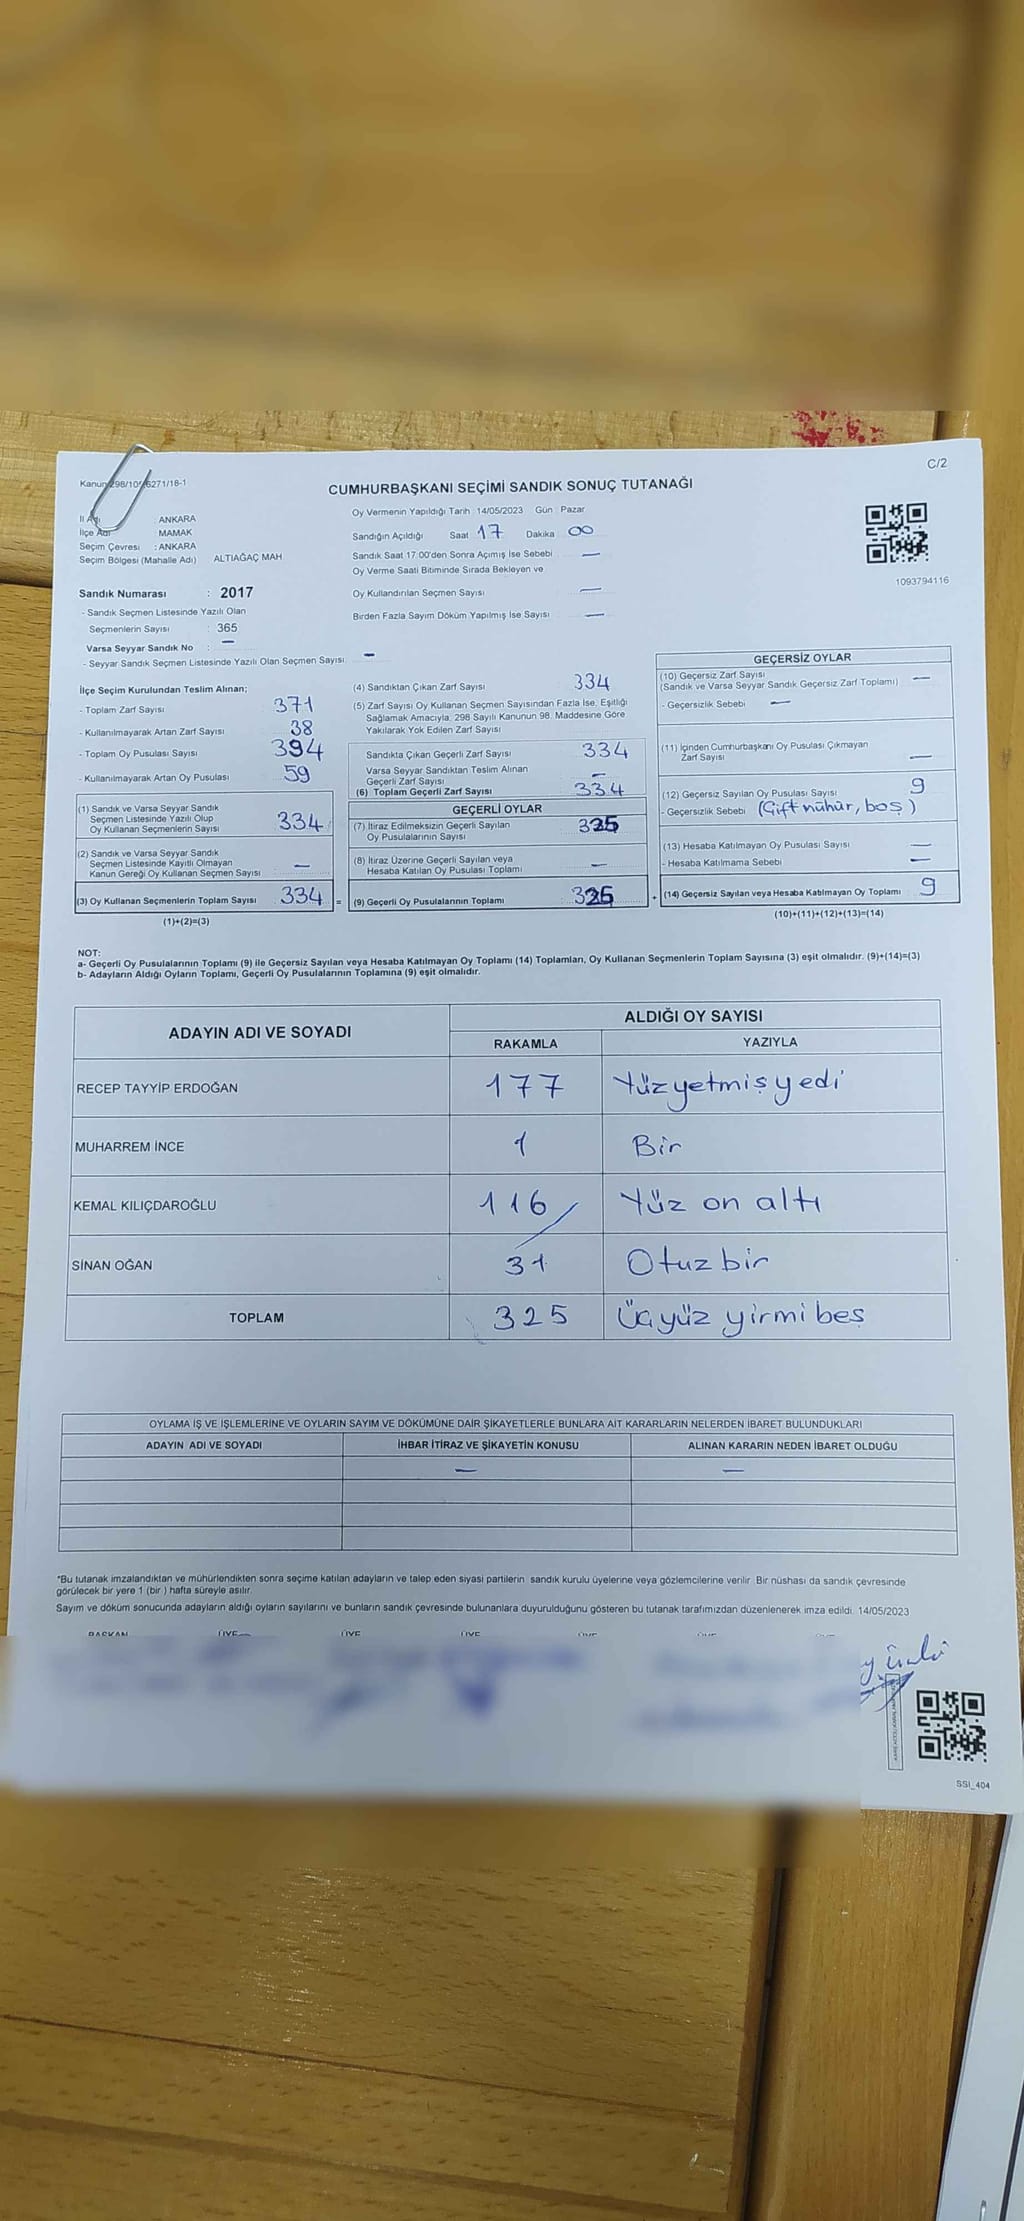 C/2
Kanun 298/105 6271/18-1
CUMHURBAŞKANI SEÇİMİ SANDIK SONUÇ TUTANAĞI
İl Adı : ANKARA
İlçe Adı : MAMAK
Seçim Çevresi : ANKARA
Seçim Bölgesi (Mahalle Adı) ALTIAĞAÇ MAH
Sandık Numarası : 2017
- Sandık Seçmen Listesinde Yazılı Olan
Seçmenlerin Sayısı : 365
Varsa Seyyar Sandık No : -
- Seyyar Sandık Seçmen Listesinde Yazılı Olan Seçmen Sayısı: -
Oy Vermenin Yapıldığı Tarih : 14/05/2023 Gün : Pazar
Sandığın Açıldığı Saat 17 Dakika 00
Sandık Saat 17:00'den Sonra Açımış İse Sebebi -
Oy Verme Saati Bitiminde Sırada Bekleyen ve
Oy Kullandırılan Seçmen Sayısı -
Birden Fazla Sayım Döküm Yapılmış İse Sayısı -
1093794116
İlçe Seçim Kurulundan Teslim Alınan;
- Toplam Zarf Sayısı 371
- Kullanılmayarak Artan Zarf Sayısı 38
- Toplam Oy Pusulası Sayısı 394
- Kullanılmayarak Artan Oy Pusulası 59
(1) Sandık ve Varsa Seyyar Sandık
Seçmen Listesinde Yazılı Olup
Oy Kullanan Seçmenlerin Sayısı 334
(2) Sandık ve Varsa Seyyar Sandık
Seçmen Listesinde Kayıtlı Olmayan
Kanun Gereği Oy Kullanan Seçmen Sayısı -
(3) Oy Kullanan Seçmenlerin Toplam Sayısı 334 =
(1)+(2)=(3)
(4) Sandıktan Çıkan Zarf Sayısı 334
(5) Zarf Sayısı Oy Kullanan Seçmen Sayısından Fazla İse, Eşitliği
Sağlamak Amacıyla, 298 Sayılı Kanunun 98. Maddesine Göre
Yakılarak Yok Edilen Zarf Sayısı
Sandıkta Çıkan Geçerli Zarf Sayısı 334
Varsa Seyyar Sandıktan Teslim Alınan
Geçerli Zarf Sayısı -
(6) Toplam Geçerli Zarf Sayısı 334
GEÇERLİ OYLAR
(7) İtiraz Edilmeksizin Geçerli Sayılan
Oy Pusulalarının Sayısı 325
(8) İtiraz Üzerine Geçerli Sayılan veya
Hesaba Katılan Oy Pusulası Toplamı -
(9) Geçerli Oy Pusulalarının Toplamı 325 +
GEÇERSİZ OYLAR
(10) Geçersiz Zarf Sayısı
(Sandık ve Varsa Seyyar Sandık Geçersiz Zarf Toplamı) -
- Geçersizlik Sebebi -
(11) İçinden Cumhurbaşkanı Oy Pusulası Çıkmayan
Zarf Sayısı -
(12) Geçersiz Sayılan Oy Pusulası Sayısı 9
- Geçersizlik Sebebi (Çift mühür, boş)
(13) Hesaba Katılmayan Oy Pusulası Sayısı -
- Hesaba Katılmama Sebebi -
(14) Geçersiz Sayılan veya Hesaba Katılmayan Oy Toplamı 9
(10)+(11)+(12)+(13)=(14)
NOT:
a- Geçerli Oy Pusulalarının Toplamı (9) ile Geçersiz Sayılan veya Hesaba Katılmayan Oy Toplamı (14) Toplamları, Oy Kullanan Seçmenlerin Toplam Sayısına (3) eşit olmalıdır. (9)+(14)=(3)
b- Adayların Aldığı Oyların Toplamı, Geçerli Oy Pusulalarının Toplamına (9) eşit olmalıdır.
ADAYIN ADI VE SOYADI ALDIĞI OY SAYISI
RAKAMLA YAZIYLA
RECEP TAYYİP ERDOĞAN 177 Yüzyetmişyedi
MUHARREM İNCE 1 Bir
KEMAL KILIÇDAROĞLU 116 Yüz on altı
SİNAN OĞAN 31 Otuzbir
TOPLAM 325 Üçyüz yirmibeş
OYLAMA İŞ VE İŞLEMLERİNE VE OYLARIN SAYIM VE DÖKÜMÜNE DAİR ŞİKAYETLERLE BUNLARA AİT KARARLARIN NELERDEN İBARET BULUNDUKLARI
ADAYIN ADI VE SOYADI İHBAR İTİRAZ VE ŞİKAYETİN KONUSU ALINAN KARARIN NEDEN İBARET OLDUĞU
- -
*Bu tutanak imzalandıktan ve mühürlendikten sonra seçime katılan adayların ve talep eden siyasi partilerin sandık kurulu üyelerine veya gözlemcilerine verilir. Bir nüshası da sandık çevresinde
görülecek bir yere 1 (bir ) hafta süreyle asılır.
Sayım ve döküm sonucunda adayların aldığı oyların sayılarını ve bunların sandık çevresinde bulunanlara duyurulduğunu gösteren bu tutanak tarafımızdan düzenlenerek imza edildi. 14/05/2023
BAŞKAN ÜYE ÜYE ÜYE ÜYE ÜYE ÜYE
SSI_404